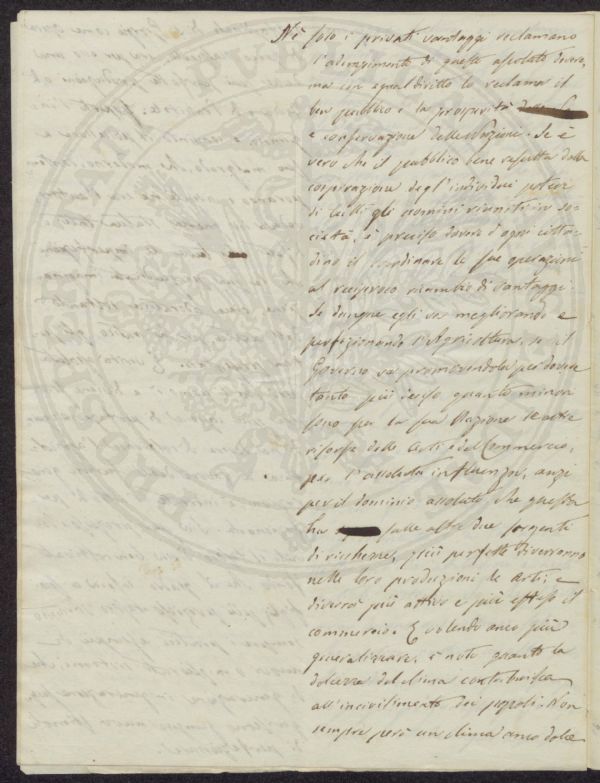 Nè solo i privati vantaggi reclamano
l'adempimento di questo assoluto dovere,
ma con egual diritto lo reclama il
ben pubblico e la prosperità
e conservazione della Nazione. Se è
vero che il pubblico bene risulta dalla
cospirazione degl'individui
di tutti gli uomini riuniti in so-
cietà, è preciso dovere d'ogni citta-
dino il coordinare le sue operazioni
al reciproco ricambio di vantaggi.
Se dunque egli va migliorando e
perfezionando l'Agricoltura, se il
Governo va promovendola per dovere
tanto più preciso quanto minori
sono per la sua Nazione le altre
risorse delle Arti e del Commercio,
per l'assoluta influenza, anzi
per il dominio assoluto che questa
ha sulle altre due sorgenti
di ricchezze, più perfette diverranno
nelle loro produzioni le Arti, e
diverrà più attivo e più esteso il
commercio. E volendo anco più
generalizzare, è noto quanto la
dolcezza del clima contribuisca
all'incivilimento dei popoli. Non
sempre però un clima anco dolce